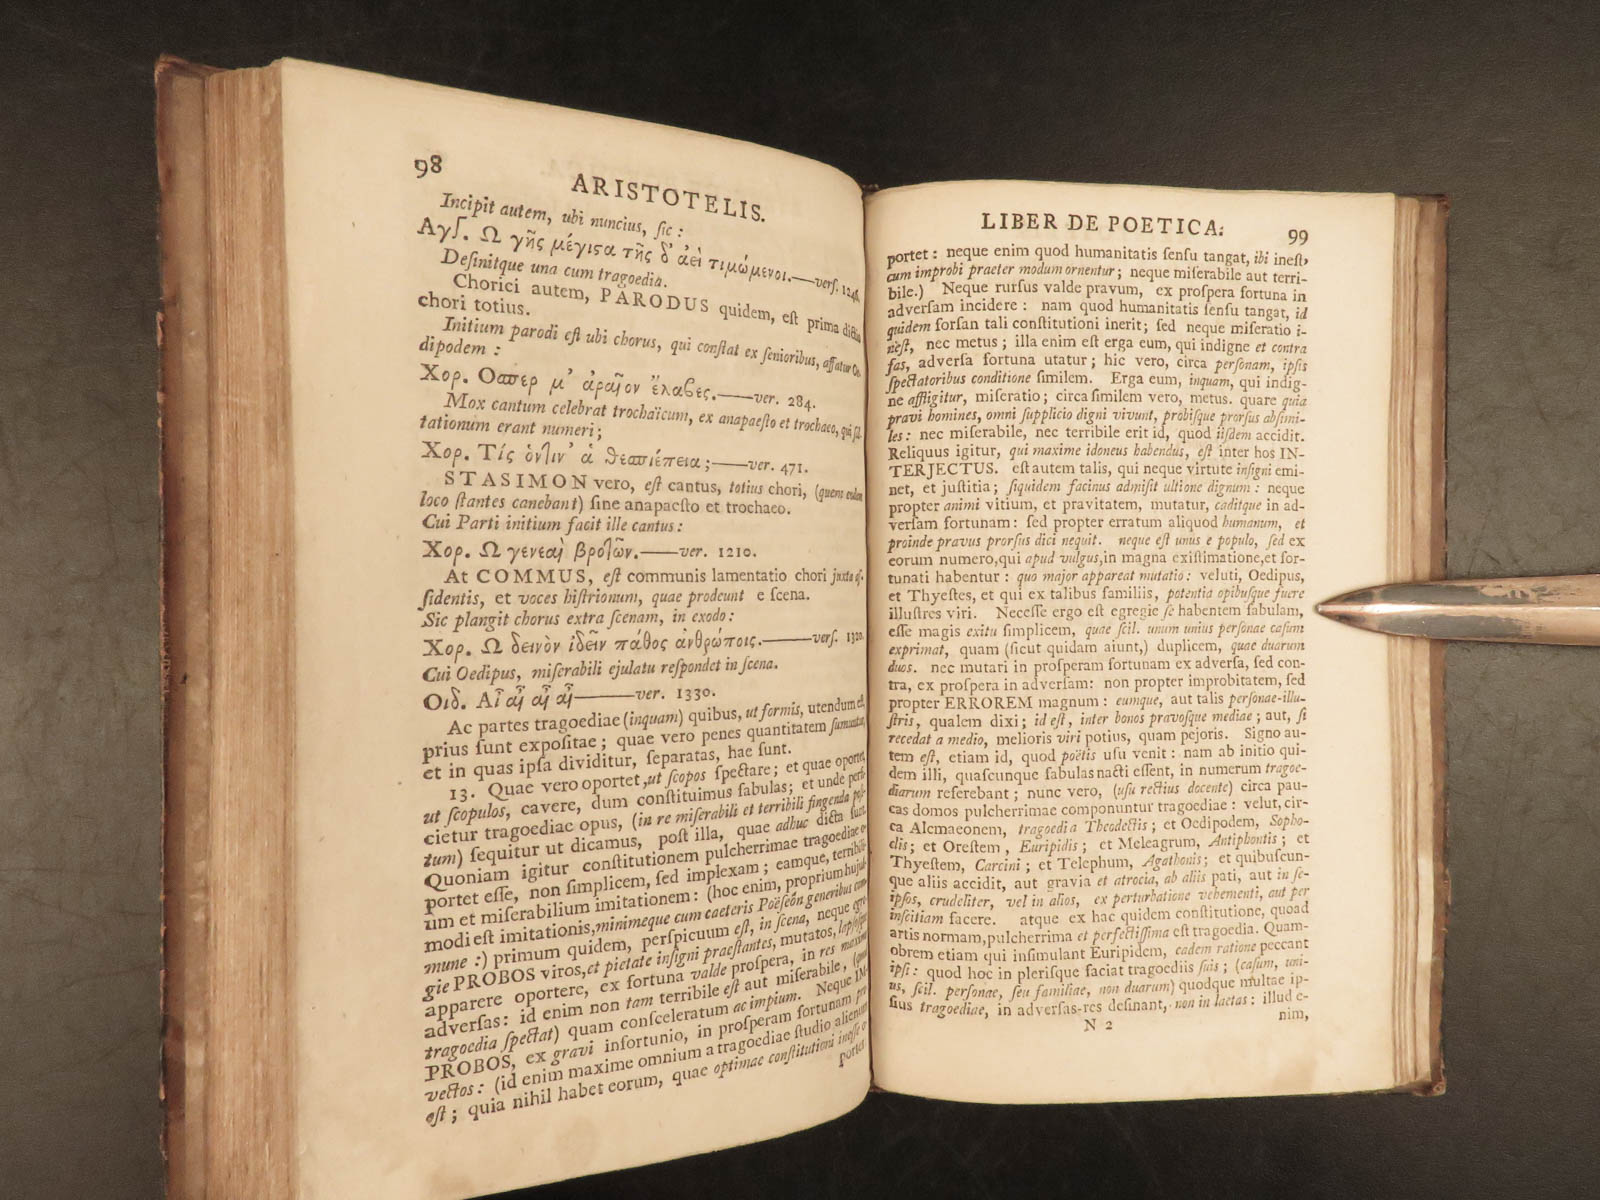 98
ARISTOTELIS.
Incipit autem, ubi nuncius, ſic :
Αγγ. Ω γῆς μέγιςα τῆς δ᾽ ἀεὶ τιμώμενοι.——verſ. 1246.
Deſinitque una cum tragoedia.
Chorici autem, PARODUS quidem, eſt prima dictio
chori totius.
Initium parodi eſt ubi chorus, qui conſtat ex ſenioribus, affatur Oe-
dipodem :
Χορ. Οσπερ μ᾽ ἀραῖον ἔλαβες.——ver. 284.
Mox cantum celebrat trochaïcum, ex anapaeſto et trochaeo, qui ſal-
tationum erant numeri ;
Χορ. Τίς ὅντιν᾽ ἁ θεσπιέπεια ;——ver. 471.
STASIMON vero, eſt cantus, totius chori, (quem eodem
loco ſtantes canebant) ſine anapaeſto et trochaeo.
Cui Parti initium facit ille cantus :
Χορ. Ω γενεαὶ βροτῶν.——ver. 1210.
At COMMUS, eſt communis lamentatio chori juxta aſ-
ſidentis, et voces hiſtrionum, quae prodeunt e ſcena.
Sic plangit chorus extra ſcenam, in exodo :
Χορ. Ω δεινὸν ἰδεῖν πάθος ἀνθρώποις.——verſ. 1320.
Cui Oedipus, miſerabili ejulatu reſpondet in ſcena.
Οιδ. Αἶ αἶ αἶ αἶ——ver. 1330.
Ac partes tragoediae (inquam) quibus, ut formis, utendum eſt,
prius ſunt expoſitae ; quae vero penes quantitatem ſumuntur,
et in quas ipſa dividitur, ſeparatas, hae ſunt.
13. Quae vero oportet, ut ſcopos ſpectare ; et quae oportet,
ut ſcopulos, cavere, dum conſtituimus fabulas ; et unde perfi-
cietur tragoediae opus, (in re miſerabili et terribili fingenda poſi-
tum) ſequitur ut dicamus, poſt illa, quae adhuc dicta ſunt.
Quoniam igitur conſtitutionem pulcherrimae tragoediae o-
portet eſſe, non ſimplicem, ſed implexam ; eamque, terribili-
um et miſerabilium imitationem : (hoc enim, proprium hujuſ-
modi eſt imitationis, minimeque cum caeteris Poëſeôn generibus com-
mune :) primum quidem, perſpicuum eſt, in ſcena, neque egre-
gie PROBOS viros, et pietate inſigni praeſtantes, mutatos, lapſoſque
apparere oportere, ex fortuna valde proſpera, in res maxime
adverſas : id enim non tam terribile eſt aut miſerabile, (quae
tragoedia ſpectat) quam conſceleratum ac impium. Neque IM-
PROBOS, ex gravi infortunio, in proſperam fortunam pro-
vectos : (id enim maxime omnium a tragoediae ſtudio alienum
eſt ; quia nihil habet eorum, quae optimae conſtitutioni ineſſe o-
portet
LIBER DE POETICA.
99
portet : neque enim quod humanitatis ſenſu tangat, ibi ineſt,
cum improbi praeter modum ornentur ; neque miſerabile aut terri-
bile.) Neque rurſus valde pravum, ex proſpera fortuna in
adverſam incidere : nam quod humanitatis ſenſu tangat, id
quidem forſan tali conſtitutioni inerit ; ſed neque miſeratio i-
neſt, nec metus ; illa enim eſt erga eum, qui indigne et contra
fas, adverſa fortuna utatur ; hic vero, circa perſonam, ipſis
ſpectatoribus conditione ſimilem. Erga eum, inquam, qui indig-
ne affligitur, miſeratio ; circa ſimilem vero, metus. quare quia
pravi homines, omni ſupplicio digni vivunt, probiſque prorſus abſimi-
les : nec miſerabile, nec terribile erit id, quod iiſdem accidit.
Reliquus igitur, qui maxime idoneus habendus, eſt inter hos IN-
TERJECTUS. eſt autem talis, qui neque virtute inſigni emi-
net, et juſtitia ; ſiquidem facinus admiſit ultione dignum : neque
propter animi vitium, et pravitatem, mutatur, caditque in ad-
verſam fortunam : ſed propter erratum aliquod humanum, et
proinde pravus prorſus dici nequit. neque eſt unus e populo, ſed ex
eorum numero, qui apud vulgus, in magna exiſtimatione, et for-
tunati habentur : quo major appareat mutatio : veluti, Oedipus,
et Thyeſtes, et qui ex talibus familiis, potentia opibuſque fuere
illuſtres viri. Neceſſe ergo eſt egregie ſe habentem fabulam,
eſſe magis exitu ſimplicem, quae ſcil. unum unius perſonae caſum
exprimat, quam (ſicut quidam aiunt,) duplicem, quae duarum
duos. nec mutari in proſperam fortunam ex adverſa, ſed con-
tra, ex proſpera in adverſam : non propter improbitatem, ſed
propter ERROREM magnum : eumque, aut talis perſonae-illu-
ſtris, qualem dixi ; id eſt, inter bonos pravoſque mediae ; aut, ſi
recedat a medio, melioris viri potius, quam pejoris. Signo au-
tem eſt, etiam id, quod poëtis uſu venit : nam ab initio qui-
dem illi, quaſcunque fabulas nacti eſſent, in numerum tragoe-
diarum referebant ; nunc vero, (uſu rectius docente) circa pau-
cas domos pulcherrimae componuntur tragoediae : velut, cir-
ca Alcmaeonem, tragoedia Theodectis ; et Oedipodem, Sopho-
clis ; et Oreſtem, Euripidis ; et Meleagrum, Antiphontis ; et
Thyeſtem, Carcini ; et Telephum, Agathonis ; et quibuſcun-
que aliis accidit, aut gravia et atrocia, ab aliis pati, aut in ſe-
ipſos, crudeliter, vel in alios, ex perturbatione vehementi, aut per
inſcitiam facere. atque ex hac quidem conſtitutione, quoad
artis normam, pulcherrima et perfectiſſima eſt tragoedia. Quam-
obrem etiam qui inſimulant Euripidem, eadem ratione peccant
ipſi : quod hoc in pleriſque faciat tragoediis ſuis ; (caſum, uni-
us, ſcil. perſonae, ſeu familiae, non duarum) quodque multae ip-
ſius tragoediae, in adverſas-res deſinant, non in laetas : illud e-
N 2
nim,